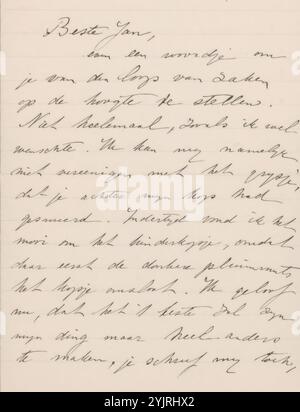 Beste Jan,
even een woordje om
je van den loop van zaken
op de hoogte te stellen.
Niet heelemaal, zooals ik wel
wenschte. Ik kan mij namelijk
niet vereenigen met het grijsje,
dat je achter mijn kop had
gesmeerd. Indertijd vond ik het
mooi om het kinderkopje, omdat
daar eerst de donkere
het kopje omsloot. Ik geloof
nu, dat het 't beste zal zijn
mijn ding maar heel anders
te maken, je schreef mij toch,
alamy
Image ID: 2YJRHX2
www.alamy.com